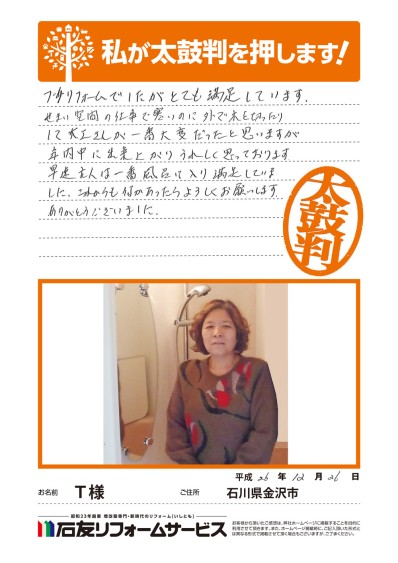 私が太鼓判を押します!
プチリフォームでしたがとても満足しています。
せまい空間の仕事で寒いのに外で木を切ったり
して大工さんが一番大変だったと思いますが
年内中に出来上がりうれしく思っております
早速主人は一番風呂に入り満足していま
した。これからも何かあったらよろしくお願いします。
ありがとうございました。
太鼓判
平成 26 年 12 月 26 日
お名前 T様 ご住所 石川県金沢市
石友リフォームサービス
お客様から頂いたご感想は、弊社ホームページに掲載することを目的に